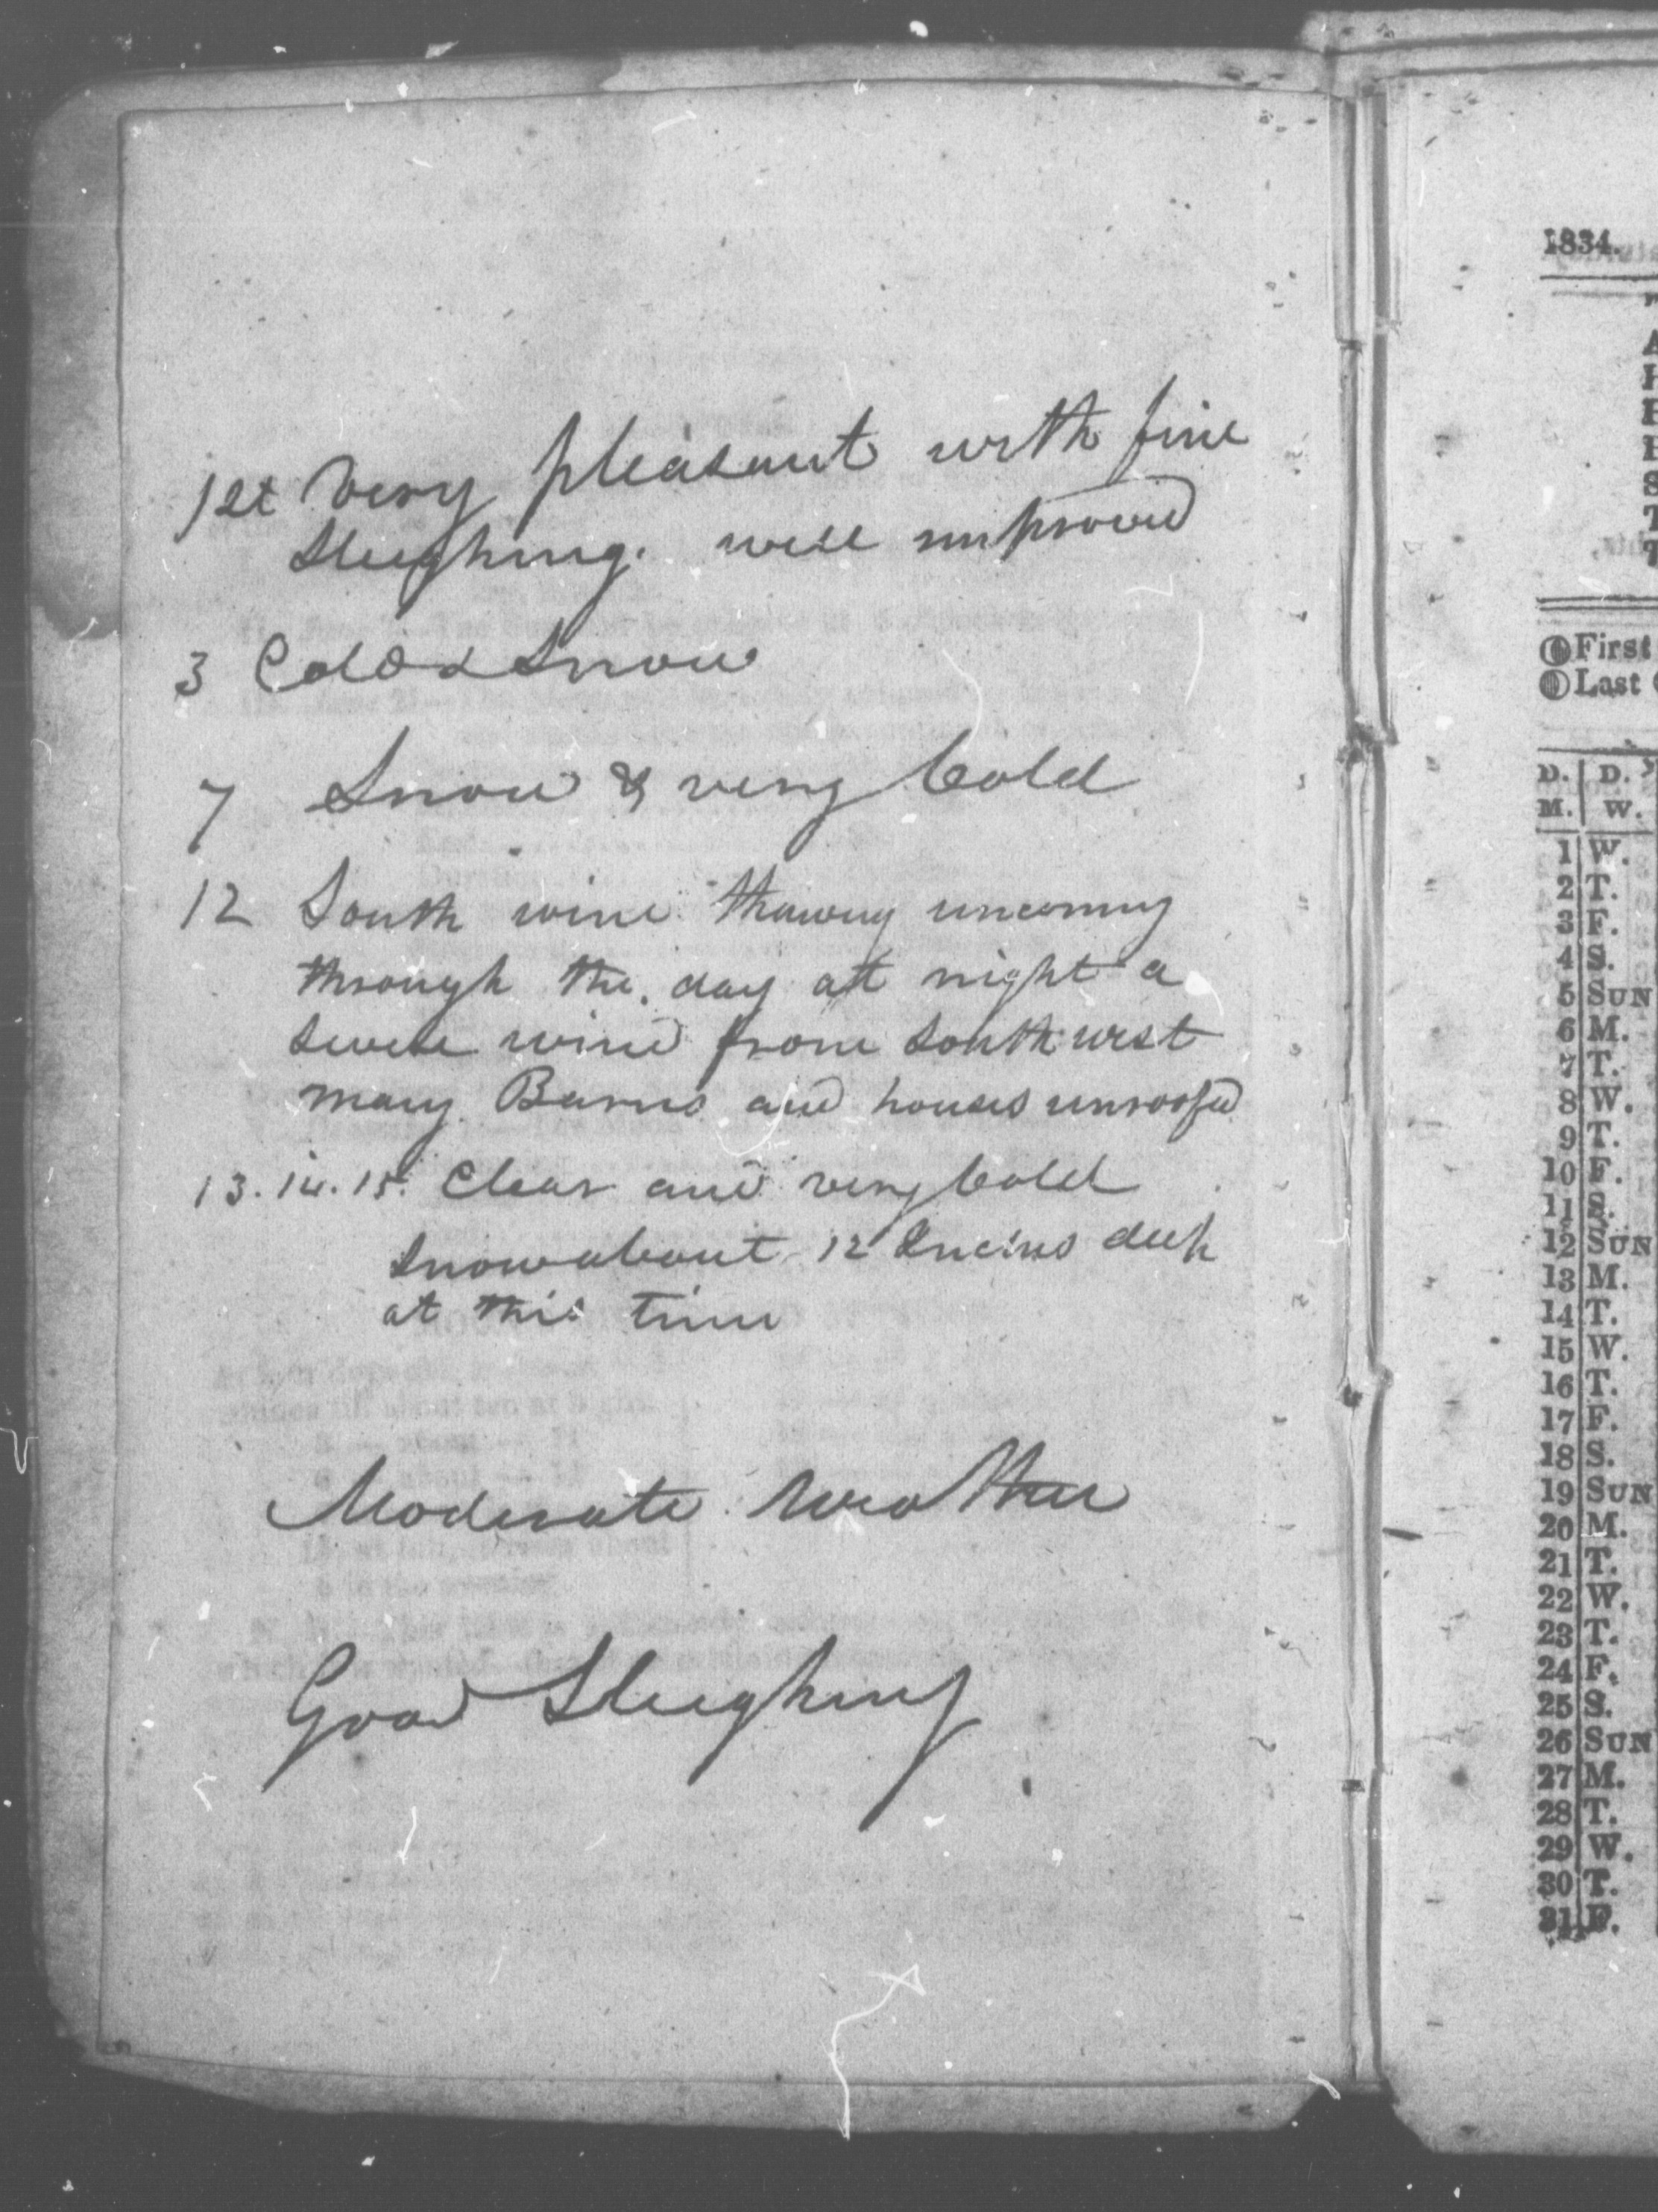 1st Very pleasant with fine
Sleighing. well improved
3 Cold & Snow
7 Snow & very Cold
12 South wind thawing uncommy
through the day at night a
severe wind from South west
many Barns and houses unroofed
13. 14. 15. Clear and very Cold
Snow about 12 Inches deep
at this time
Moderate Weather
Good Sleighing
1834.
First
Last
D. D.
M. W.
1 W.
2 T.
3 F.
4 S.
5 SUN
6 M.
7 T.
8 W.
9 T.
10 F.
11 S.
12 SUN
13 M.
14 T.
15 W.
16 T.
17 F.
18 S.
19 SUN
20 M.
21 T.
22 W.
23 T.
24 F.
25 S.
26 SUN
27 M.
28 T.
29 W.
30 T.
31 F.